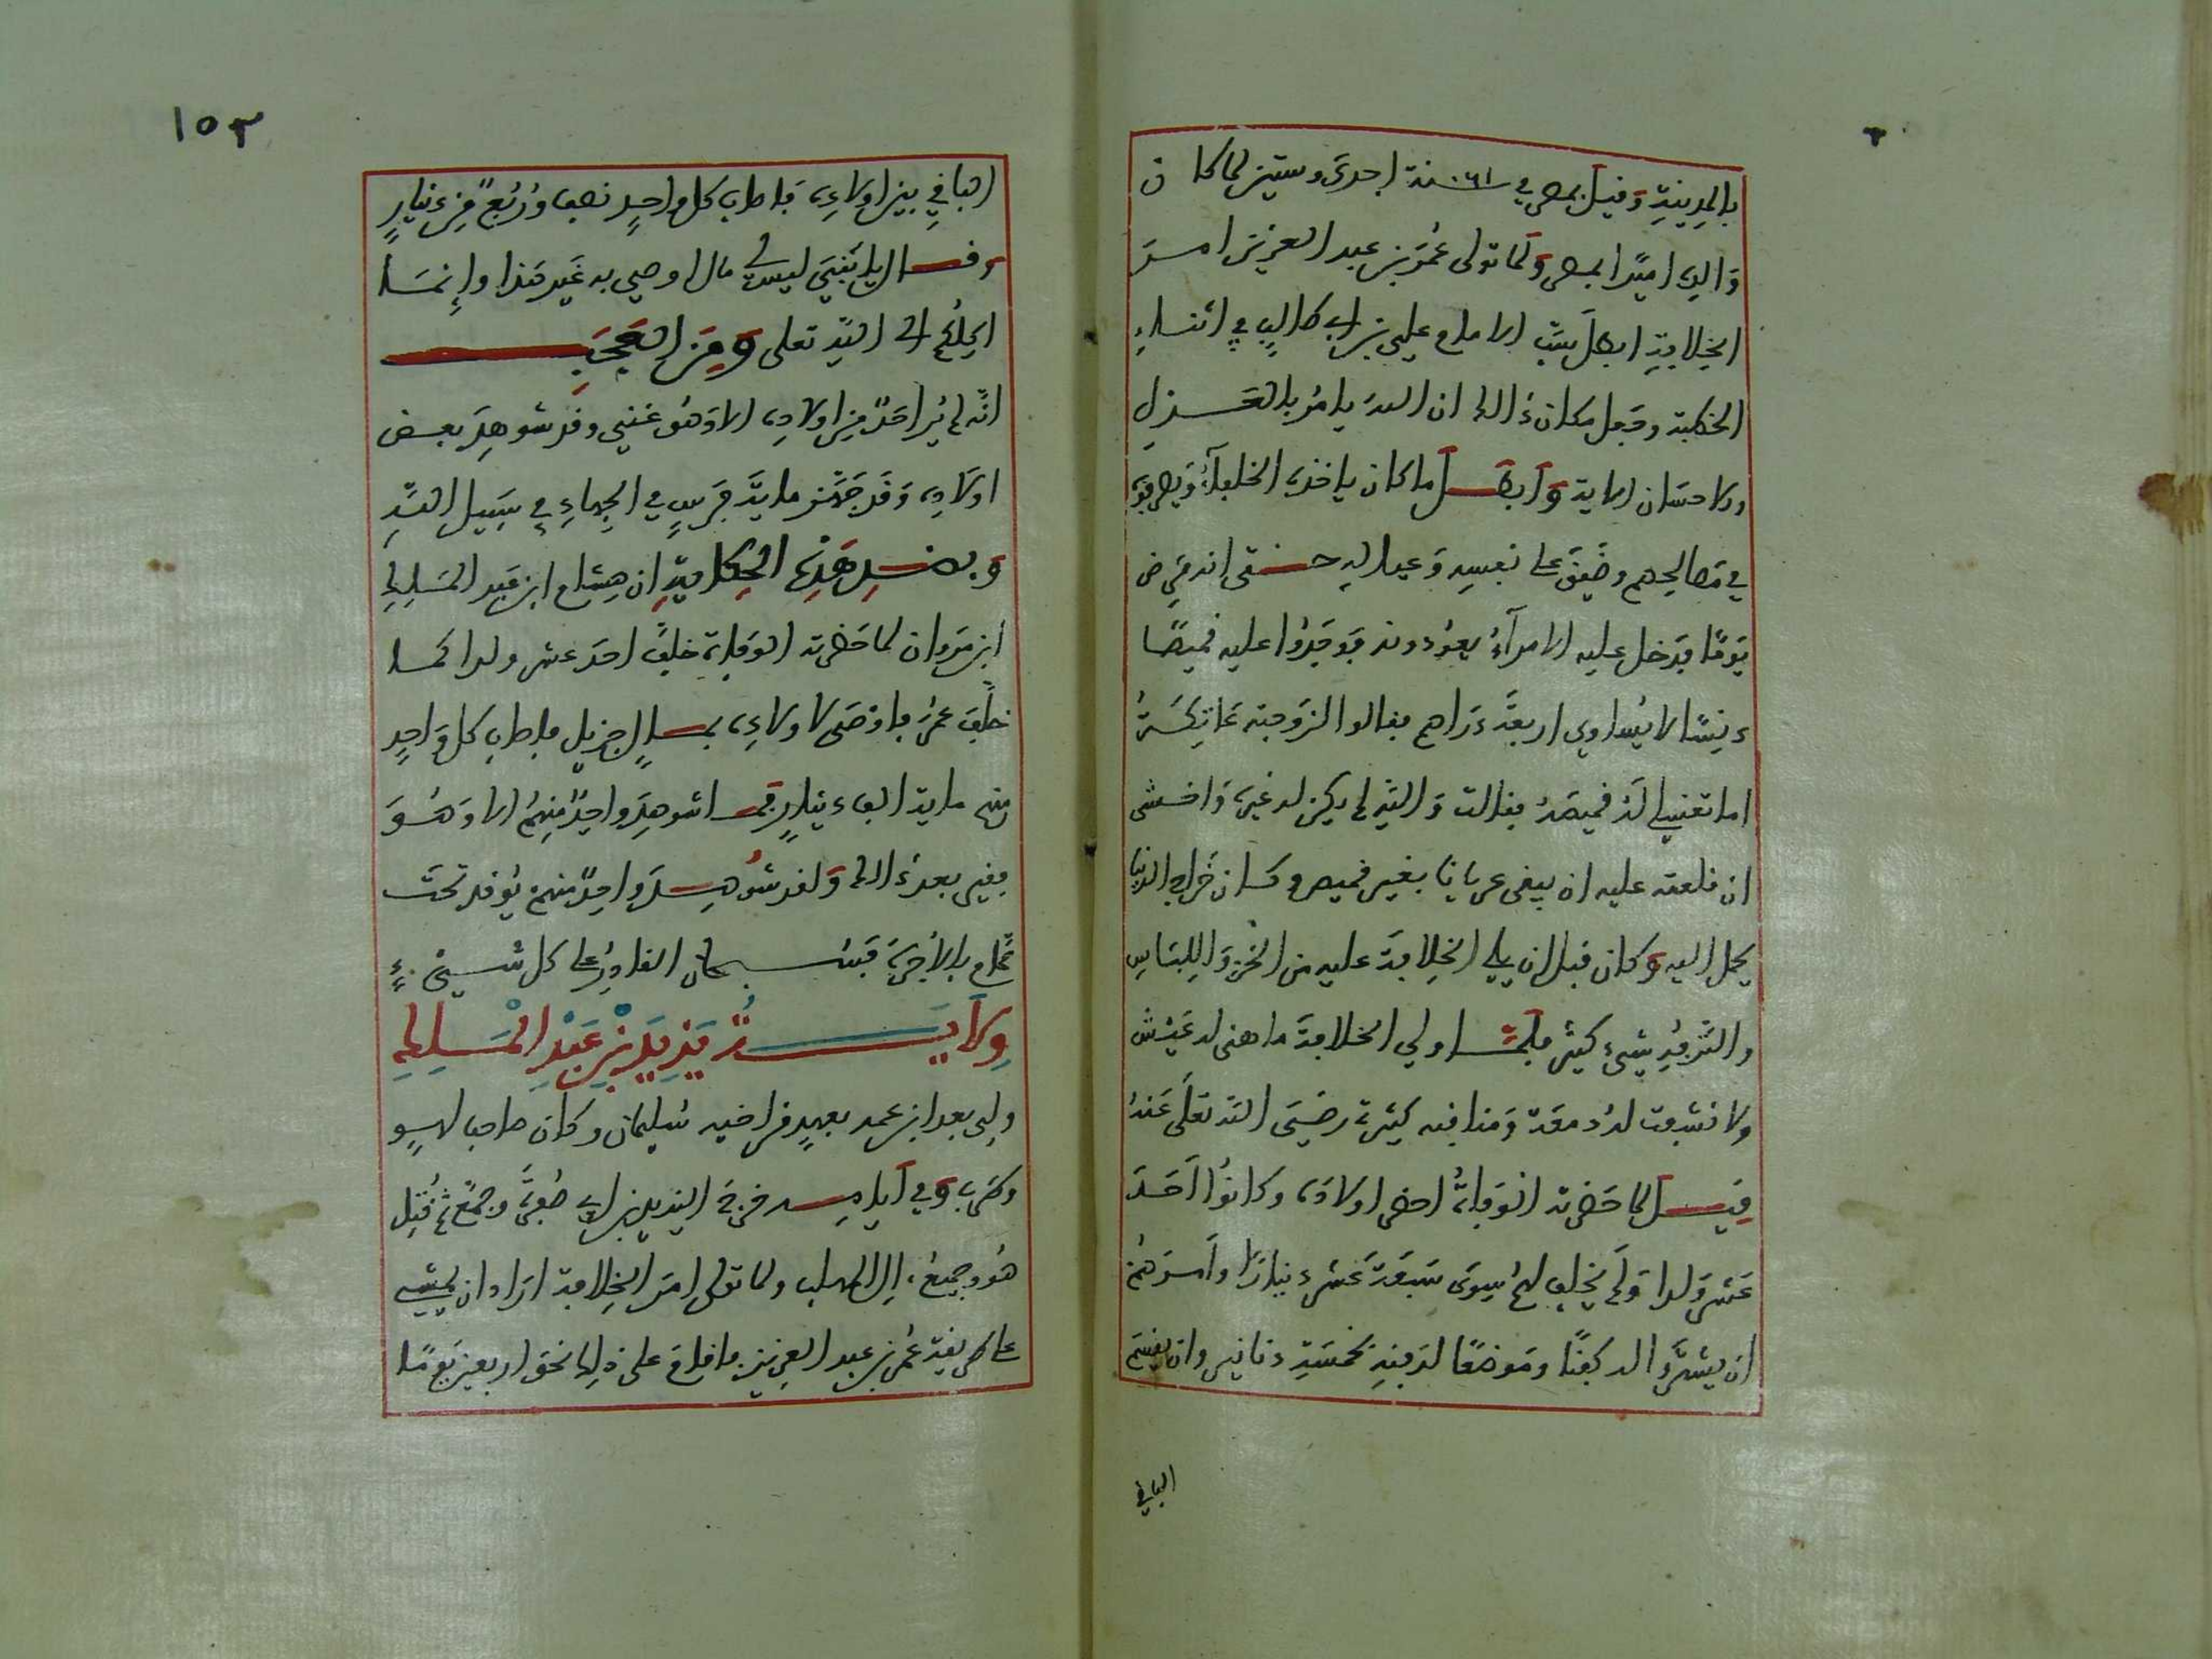 بالمدينة وقيل بمصر في ٠٦١ سنة احدى وستين لما كان
والده اميرا بمصر ولما تولى عمر بن عبد العزيز امر
الخلافة ابطل سب الامام علي بن ابي طالب في اثناء
الخطبة وجعل مكان ذالك ان الله يامر بالعدل
والاحسان الاية وابطل ما كان ياخذه الخلفاء ويصرفونه
في مصالحهم وضيق على نفسه وعياله حتى انه مرض
يوما فدخل عليه الامراء يعودونه فوجدوا عليه قميصا
دنسا لا يساوي اربعة دراهم فقالوا لزوجته عاتكة
اما تغسلي له قميصه فقالت والله لم يكن له غيره واخشى
ان قلعته عليه ان يبقى عريانا بغير قميص وكان خراج الدنيا
يحمل اليه وكان قبل ان يلي الخلافة عليه من الخز واللباس
والترفه شيء كثير فلما ولي الخلافة ما هنى له عيش
ولا نشفت له دمعة ومناقبه كثيرة رضي الله تعلى عنه
قيل لما حضرته الوفاة احضر اولاده وكانوا احد
عشر ولدا ولم يخلف لهم سوى سبعة عشر دينارا وامرهم
ان يشتروا له كفنا وموضعا لدفنه بخمسة دنانير وان يقسم
الباقي
١٥٣
الباقي بين اولاده فاصاب كل واحد نصف وربع من دينار
وقال يا بني ليس لي مال اوصي به غير هذا وانما
اكلكم الى الله تعلى ومن العجب
انه لم ير احد من اولاده الا وهو غني وقد شوهد بعض
اولاده وقد جهز ماية فرس في الجهاد في سبيل الله
وبضد هذه الحكاية ان هشام ابن عبد الملك
ابن مروان لما حضرته الوفاة خلف احد عشر ولدا كما
خلف عمر فاوصى لاولاده بمال جزيل فاصاب كل واحد
منهم ماية الف دينار فما شوهد واحد منهم الا وهو
فقير بعد ذالك ولقد شوهد واحد منهم يوقد تحت
حمام بالاجرة فسبحان القادر على كل شيء
ولاية يزيد بن عبد الملك
ولي بعد ابن عمه بعهد من اخيه سليمان وكان صاحب لهو
وطرب وفي ايامه خرج اليزيد بن ابي صفرة وجمع ثم قتل
هو وجميع ال المهلب ولما تولى امر الخلافة اراد ان يمشي
على طريقة عمر بن عبد العزيز فاقام على ذلك نحو اربعين يوما